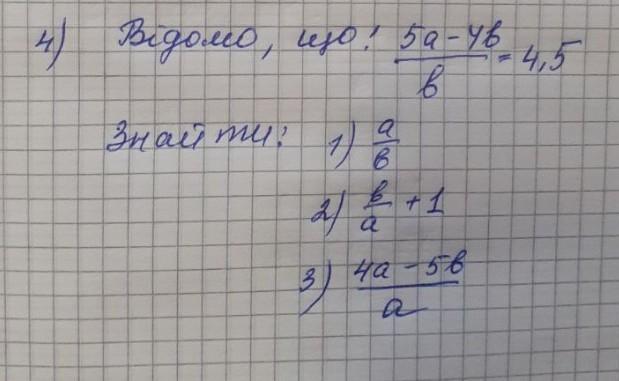 4) Відомо, що: (5а - 4в)/в = 4,5
Знайти: 1) а/в
2) в/а + 1
3) (4а - 5в)/а